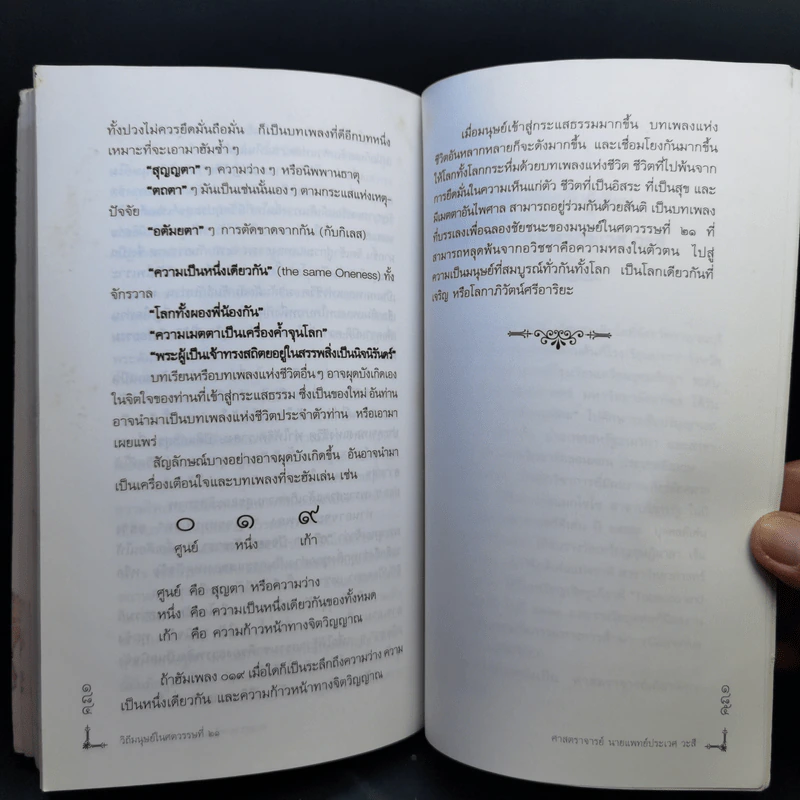 ทั้งปวงไม่ควรยึดมั่นถือมั่น ก็เป็นบทเพลงที่ดีอีกบทหนึ่ง
เหมาะที่จะเอามาฮัมซ้ำ ๆ
"สุญญตา" ๆ ความว่าง ๆ หรือนิพพานธาตุ
"ตถตา" ๆ มันเป็นเช่นนั้นเอง ๆ ตามกระแสแห่งเหตุ-
ปัจจัย
"อตัมยตา" ๆ การตัดขาดจากกัน (กับกิเลส)
"ความเป็นหนึ่งเดียวกัน" (the same Oneness) ทั้ง
จักรวาล
"โลกทั้งผองพี่น้องกัน"
"ความเมตตาเป็นเครื่องค้ำจุนโลก"
"พระผู้เป็นเจ้าทรงสถิตยอยู่ในสรรพสิ่งเป็นนิจนิรันดร์"
บทเรียนหรือบทเพลงแห่งชีวิตอื่น ๆ อาจผุดบังเกิดเอง
ในจิตใจของท่านที่เข้าสู่กระแสธรรม ซึ่งเป็นของใหม่ อันท่าน
อาจนำมาเป็นบทเพลงแห่งชีวิตประจำตัวท่าน หรือเอามา
เผยแพร่
สัญลักษณ์บางอย่างอาจผุดบังเกิดขึ้น อันอาจนำมา
เป็นเครื่องเตือนใจและบทเพลงที่จะฮัมเล่น เช่น
๐ ๑ ๙
ศูนย์ หนึ่ง เก้า
ศูนย์ คือ สุญตา หรือความว่าง
หนึ่ง คือ ความเป็นหนึ่งเดียวกันของทั้งหมด
เก้า คือ ความก้าวหน้าทางจิตวิญญาณ
ถ้าฮัมเพลง ๐๑๙ เมื่อใดก็เป็นระลึกถึงความว่าง ความ
เป็นหนึ่งเดียวกัน และความก้าวหน้าทางจิตวิญญาณ
วิถีมนุษย์ในศตวรรษที่ ๒๑
เมื่อมนุษย์เข้าสู่กระแสธรรมมากขึ้น บทเพลงแห่ง
ชีวิตอันหลากหลายก็จะดังมากขึ้น และเชื่อมโยงกันมากขึ้น
ให้โลกทั้งโลกกระหึ่มด้วยบทเพลงแห่งชีวิต ชีวิตที่ไปพ้นจาก
การยึดมั่นในความเห็นแก่ตัว ชีวิตที่เป็นอิสระ ที่เป็นสุข และ
มีเมตตาอันไพศาล สามารถอยู่ร่วมกันด้วยสันติ เป็นบทเพลง
ที่บรรเลงเพื่อฉลองชัยชนะของมนุษย์ในศตวรรษที่ ๒๑ ที่
สามารถหลุดพ้นจากอวิชชาคือความหลงในตัวตน ไปสู่
ความเป็นมนุษย์ที่สมบูรณ์ทั่วกันทั้งโลก เป็นโลกเดียวกันที่
เจริญ หรือโลกาภิวัตน์ศรีอาริยะ
ศาสตราจารย์ นายแพทย์ประเวศ วะสี